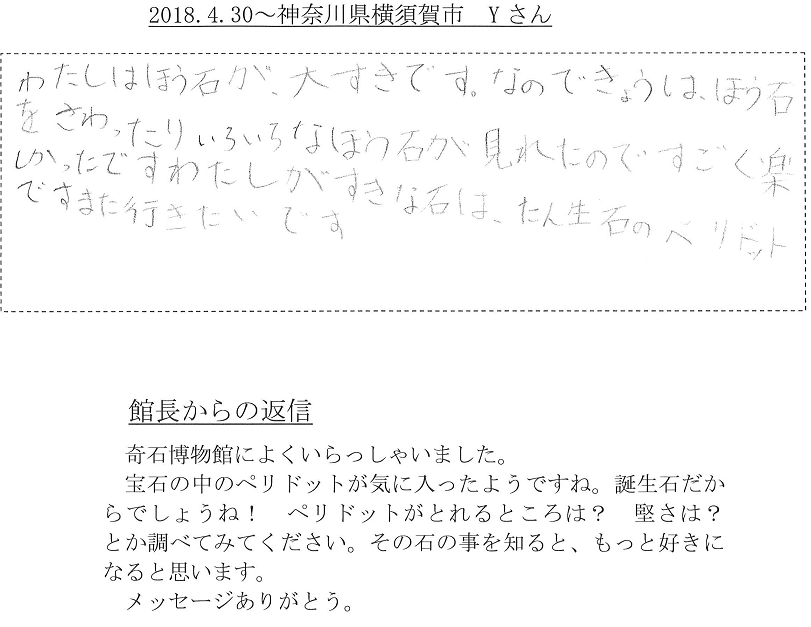 2018.4.30～神奈川県横須賀市　Yさん
わたしはほう石が、大すきです。なのできょうは、ほう石
をさわったりいろいろなほう石が見れたのですごく楽
しかったですわたしがすきな石は、たん生石のペリドット
ですまた行きたいです
館長からの返信
奇石博物館によくいらっしゃいました。
宝石の中のペリドットが気に入ったようですね。誕生石だか
らでしょうね！　ペリドットがとれるところは？　堅さは？
とか調べてみてください。その石の事を知ると、もっと好きに
なると思います。
メッセージありがとう。